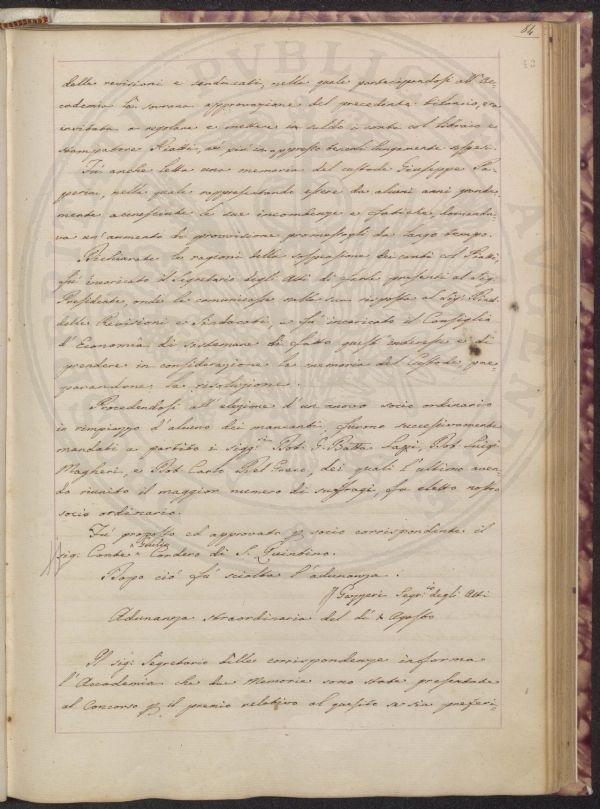 84
delle revisioni e sindacati, nella quale partecipandosi all'Ac-
cademia la sovrana approvazione del precedente bilancio, era
invitata a regolare e mettere in saldo i conti col libraio e
stampatore Piatti, nei più in appresso tenuti lungamente sospesi.
Fu anche letta una memoria del custode Giuseppe Pa-
peria, nella quale rappresentando essere da alcuni anni grande-
mente accresciute le sue incombenze e fatiche, domanda-
va un'aumento di provvisione promessogli da lungo tempo.
Dichiarate le ragioni della sospensione dei conti col Piatti,
fu incaricato il Segretario degli Atti di farle presenti al Sig.
Presidente, onde le comunicasse nella sua risposta al Sig.
delle Revisioni e Sindacati, e fu incaricato il Consiglio
d'Economia di sistemare di fatto questi interessi e di
prendere in considerazione la memoria del Custode pre-
parandone la risoluzione.
Procedendosi all'elezione d'un nuovo socio ordinario
in rimpiazzo d'alcuno dei mancanti, furono successivamente
mandati a partito i Sigg.ri Dot. G. Batta Lapi, Dot. Luigi
Magheri, e Dot. Carlo Del Greco, dei quali l'ultimo aven-
do riunito il maggior numero di suffragi, fu eletto nostro
socio ordinario.
Fu proposto ed approvato p. socio corrispondente il
sig. Conte Giulio Cordero di S. Quintino.
Dopo ciò fu sciolta l'adunanza.
Gazzeri Segr.io degli Atti
Adunanza straordinaria del dì Agosto
Il sig. Segretario delle corrispondenze informa
l'Accademia che due Memorie sono state presentate
al Concorso p. il premio relativo al quesito se sia preferi-